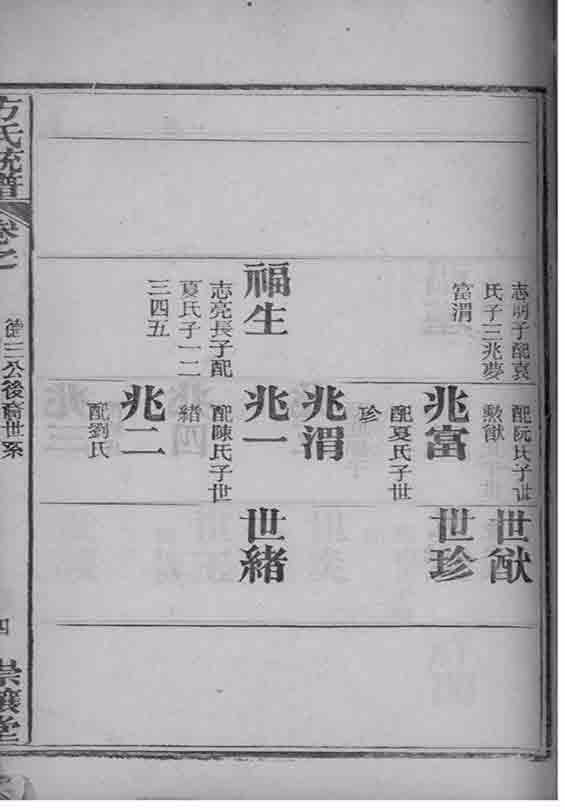 志明子配袁
氏子三兆夢
富渭
福生
志亮長子配
夏氏子一二
三四五
配阮氏子世
勲猷
兆富
配夏氏子世
珍
兆渭
兆一
配陳氏子世
緒
兆二
配劉氏
世猷
世珍
世緒
方氏統譜
卷之
德三公後裔世系
四
崇讓堂